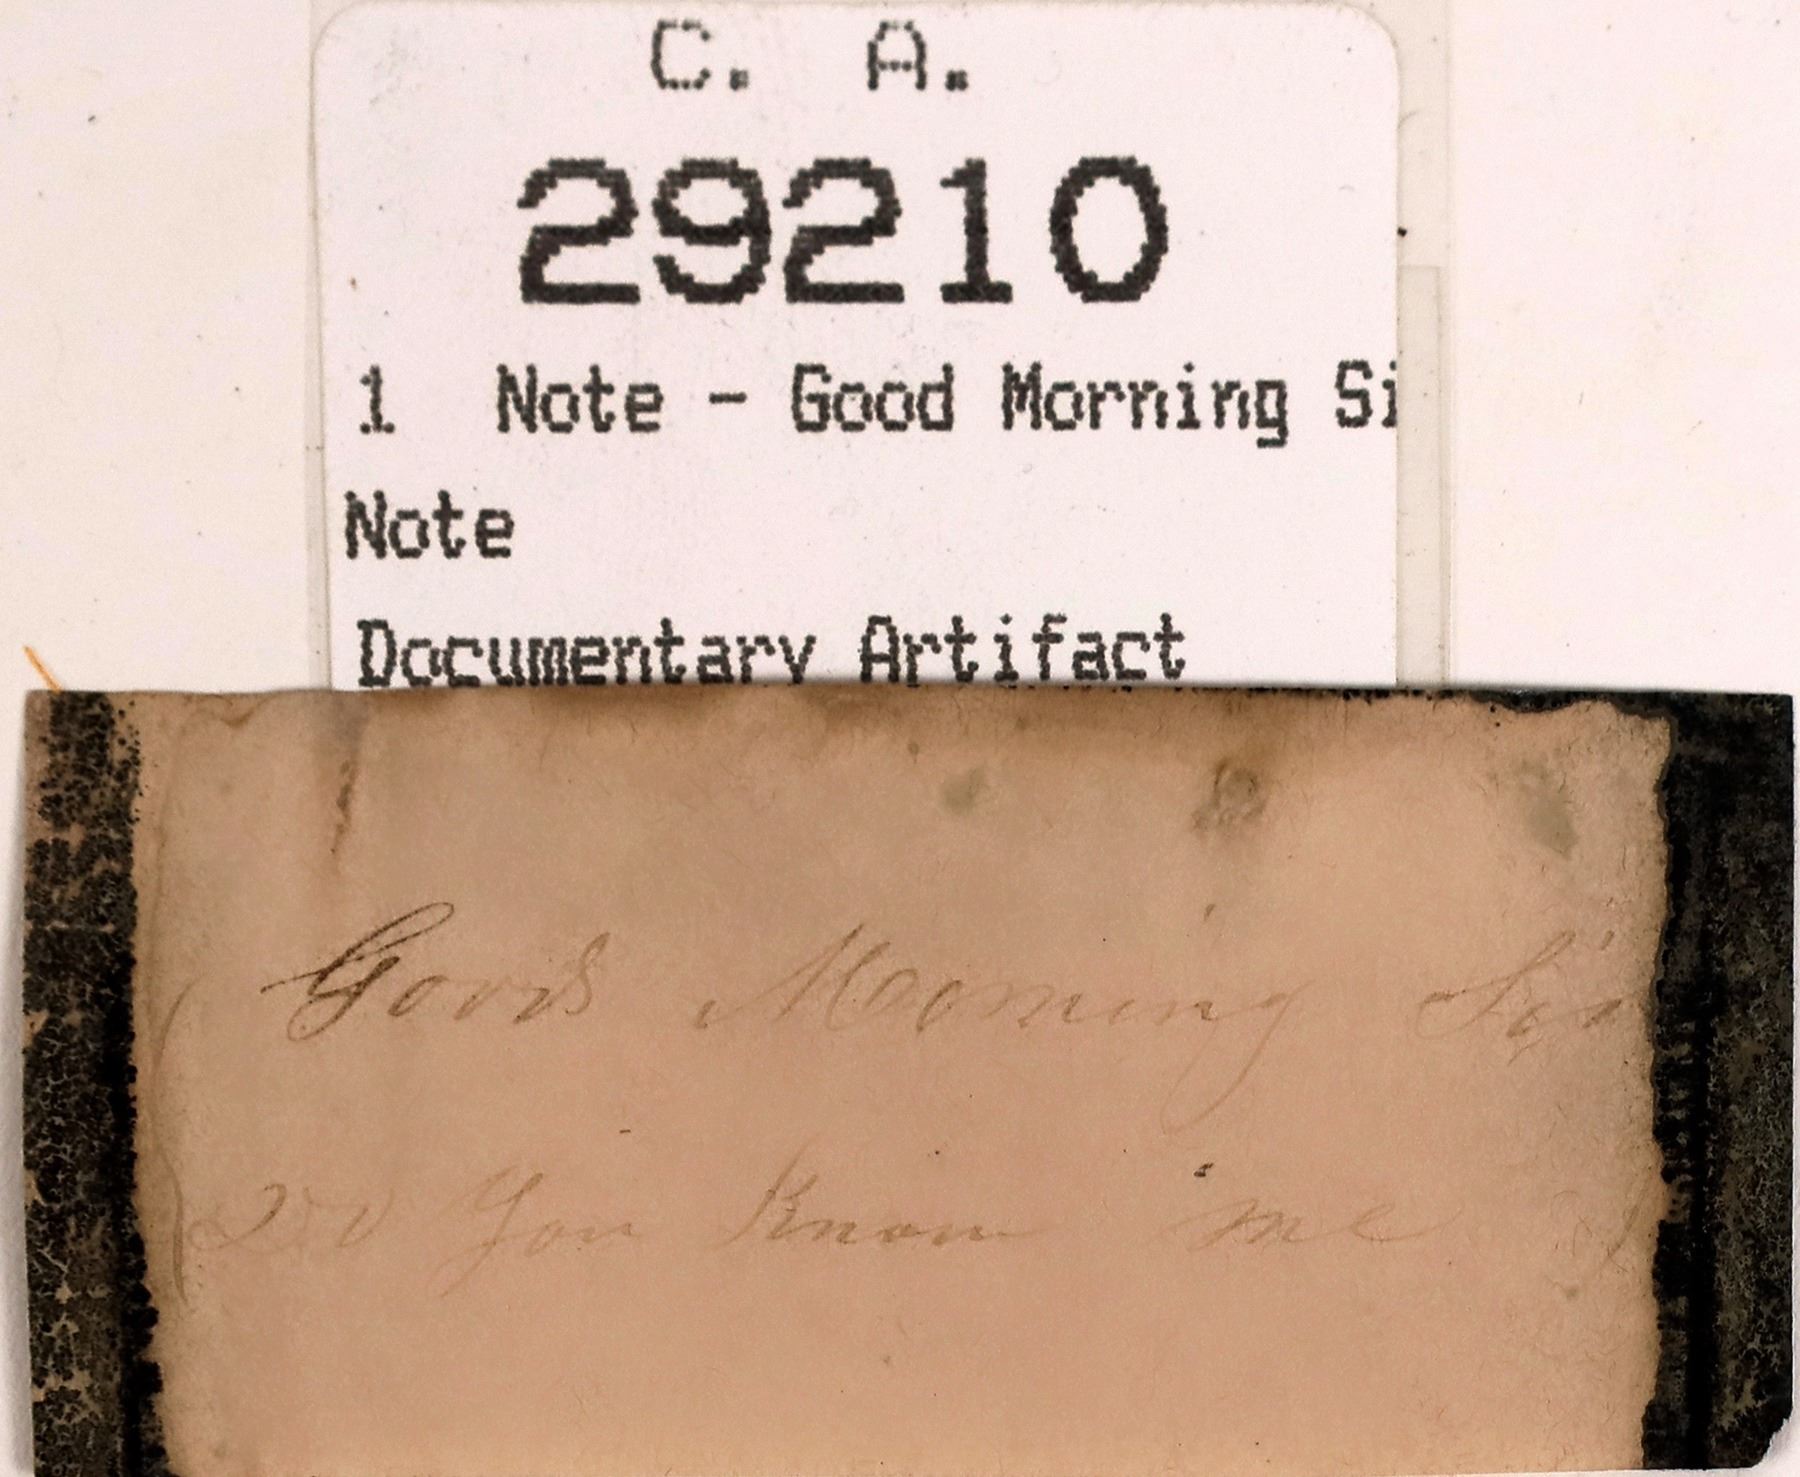 C. A.
29210
1 Note - Good Morning Si
Note
Documentary Artifact
Good Morning Sir
Do you Know me